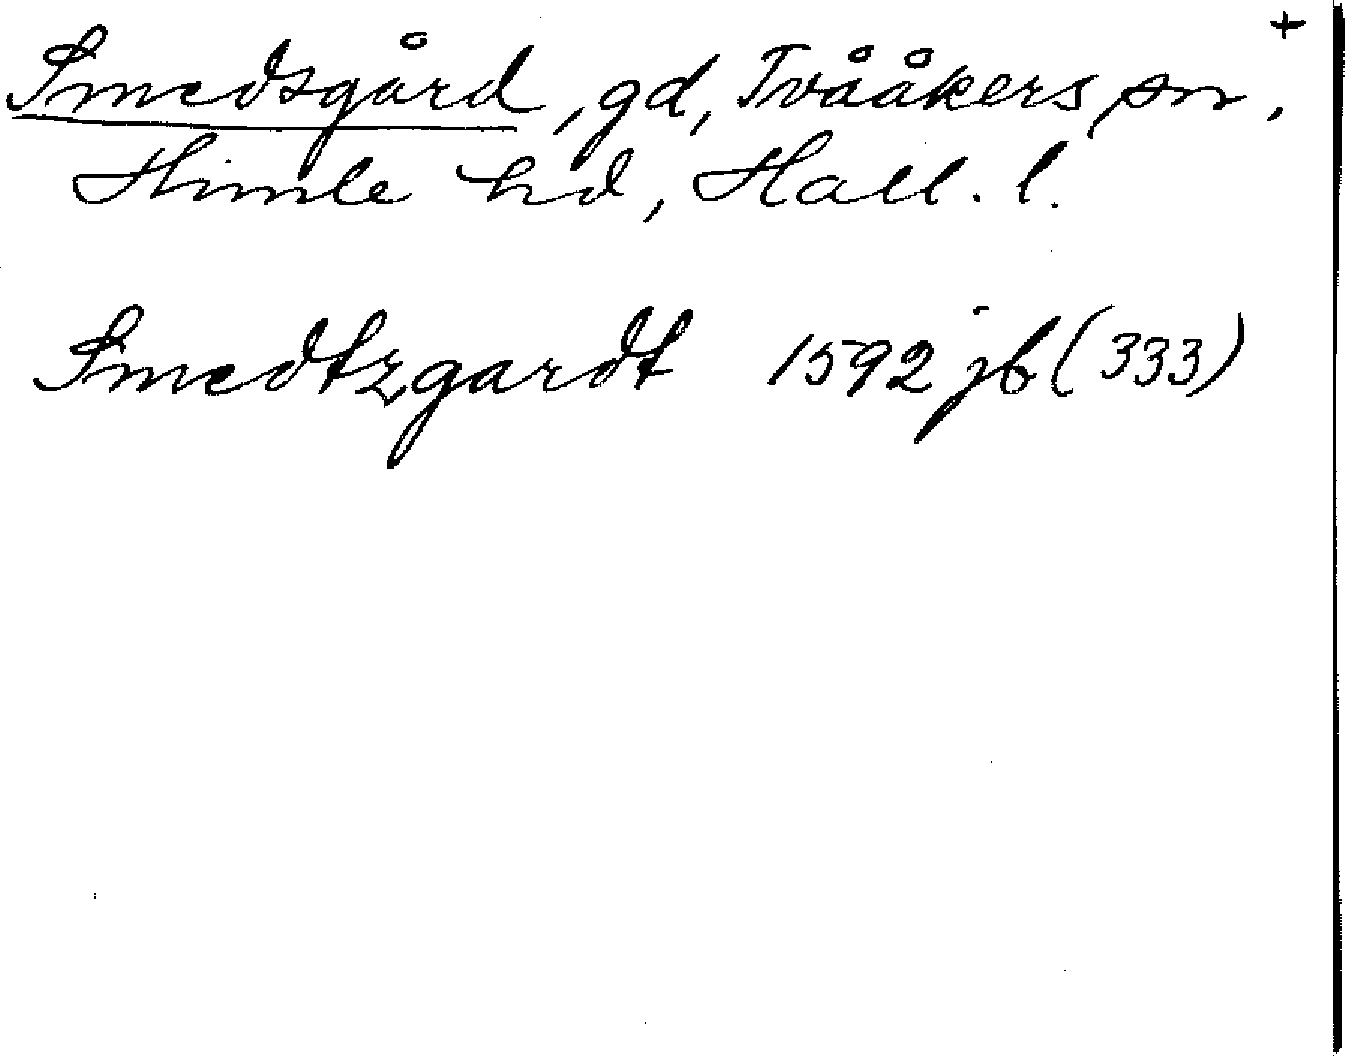 +
Smedsgård, gd, Tvååkers sn,
Himle hd, Hall. l.
Smedtzgardt 1592 jb (333)